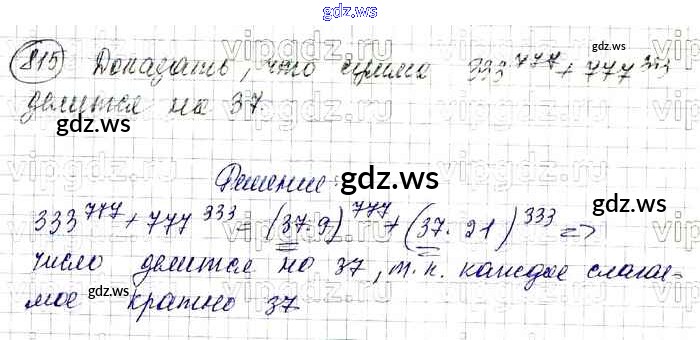 gdz.ws
815 Доказать, что сумма 333^777 + 777^333
gdz.ws
делится на 37.
gdz.ws
Решение:
gdz.ws
333^777 + 777^333 = (37·9)^777 + (37·21)^333 =>
число делится на 37, т.к. каждое слагае-
мое кратно 37
gdz.ws
gdz.ws